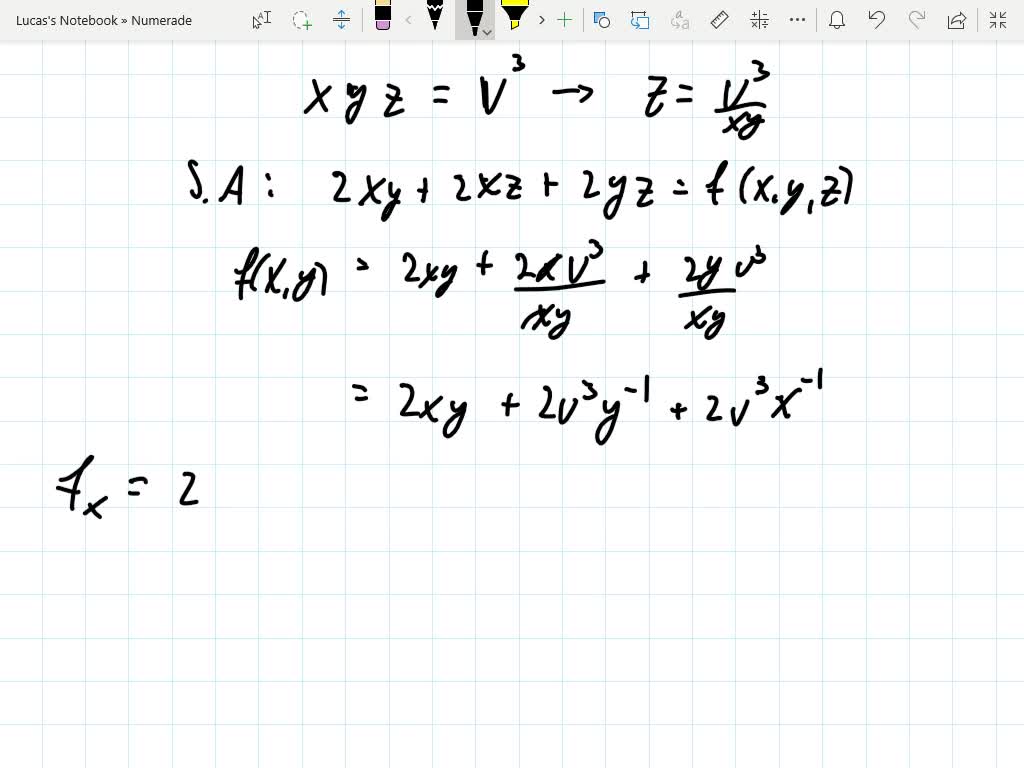 Lucas's Notebook » Numerade
x y z = V³ → z = V³/xy
S.A: 2xy + 2xz + 2yz = f(x,y,z)
f(x,y) = 2xy + 2xV³/xy + 2yv³/xy
= 2xy + 2v³y⁻¹ + 2v³x⁻¹
fₓ = 2